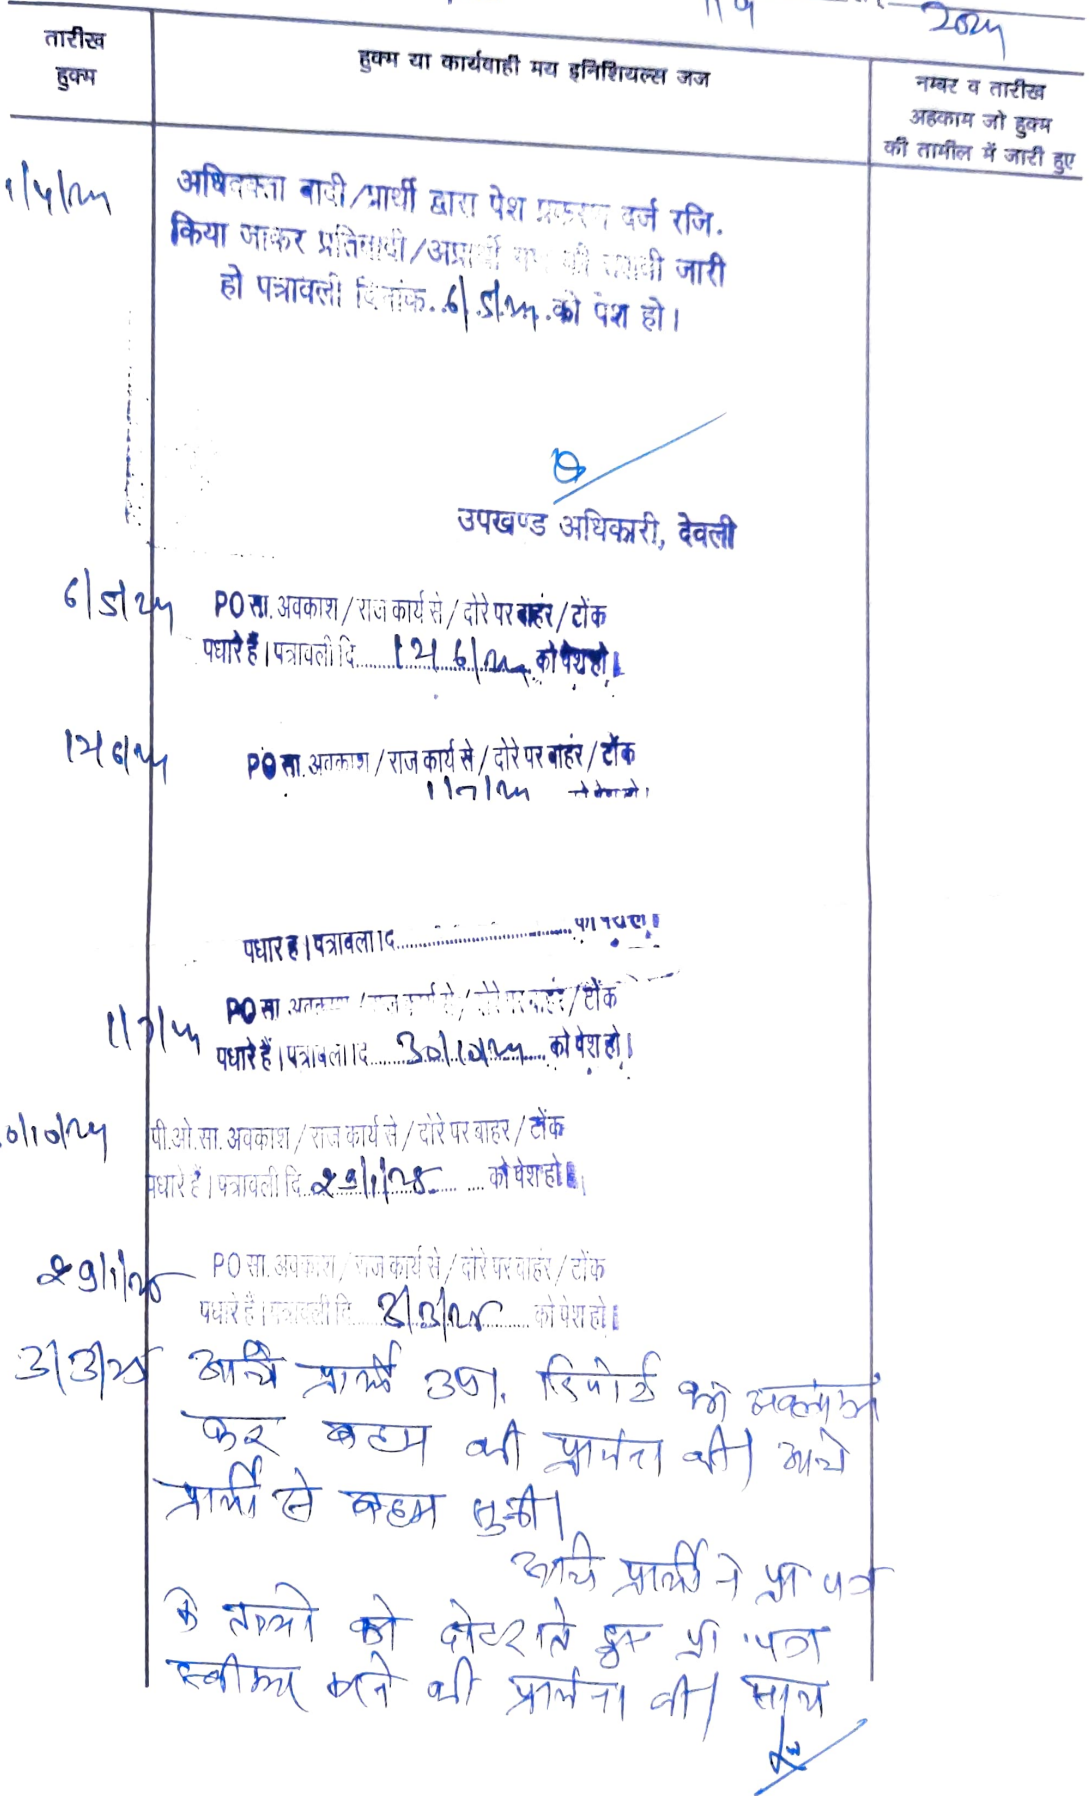 2024
तारीख
हुक्म
हुक्म या कार्यवाही मय इनिशियल्स जज
नम्बर व तारीख
अहकाम जो हुक्म
की तामील में जारी हुए
1/4/24
अधिवक्ता वादी/प्रार्थी द्वारा पेश प्रकरण दर्ज रजि.
किया जाकर प्रतिवादी/अप्रार्थी गण की तलबी जारी
हो पत्रावली दिनांक..6/5/24.को पेश हो।
उपखण्ड अधिकारी, देवली
6/5/24 PO सा. अवकाश / राज कार्य से / दोरे पर बाहर / टोंक
पधारे हैं। पत्रावली दि......12/6/24...को पेश हो।
12/6/24 PO सा. अवकाश / राज कार्य से / दोरे पर बाहर / टोंक
1/7/24 को पेश हो।
पधारे हैं। पत्रावली दि....................
PO सा अवकाश / राज कार्य से / दोरे पर बाहर / टोंक
1/7/24 पधारे हैं। पत्रावली दि......30/10/24......को पेश हो।
0/10/24 पी.ओ.सा. अवकाश / राज कार्य से / दोरे पर बाहर / टोंक
पधारे हैं। पत्रावली दि. 29/1/25 ....को पेश हो।
29/1/25 PO सा. अवकाश / राज कार्य से / दोरे पर बाहर / टोंक
पधारे हैं। पत्रावली दि....3/3/25......को पेश हो।
3/3/25 अधि प्रार्थी उप. रिपोर्ट का अवलोकन
कर बहस की प्रार्थना की। अधि
प्रार्थी से बहस सुनी।
अधि प्रार्थी ने प्रा पत्र
के तथ्यो को दोहराते हुए प्रा पत्र
स्वीकार करने की प्रार्थना की। साथ